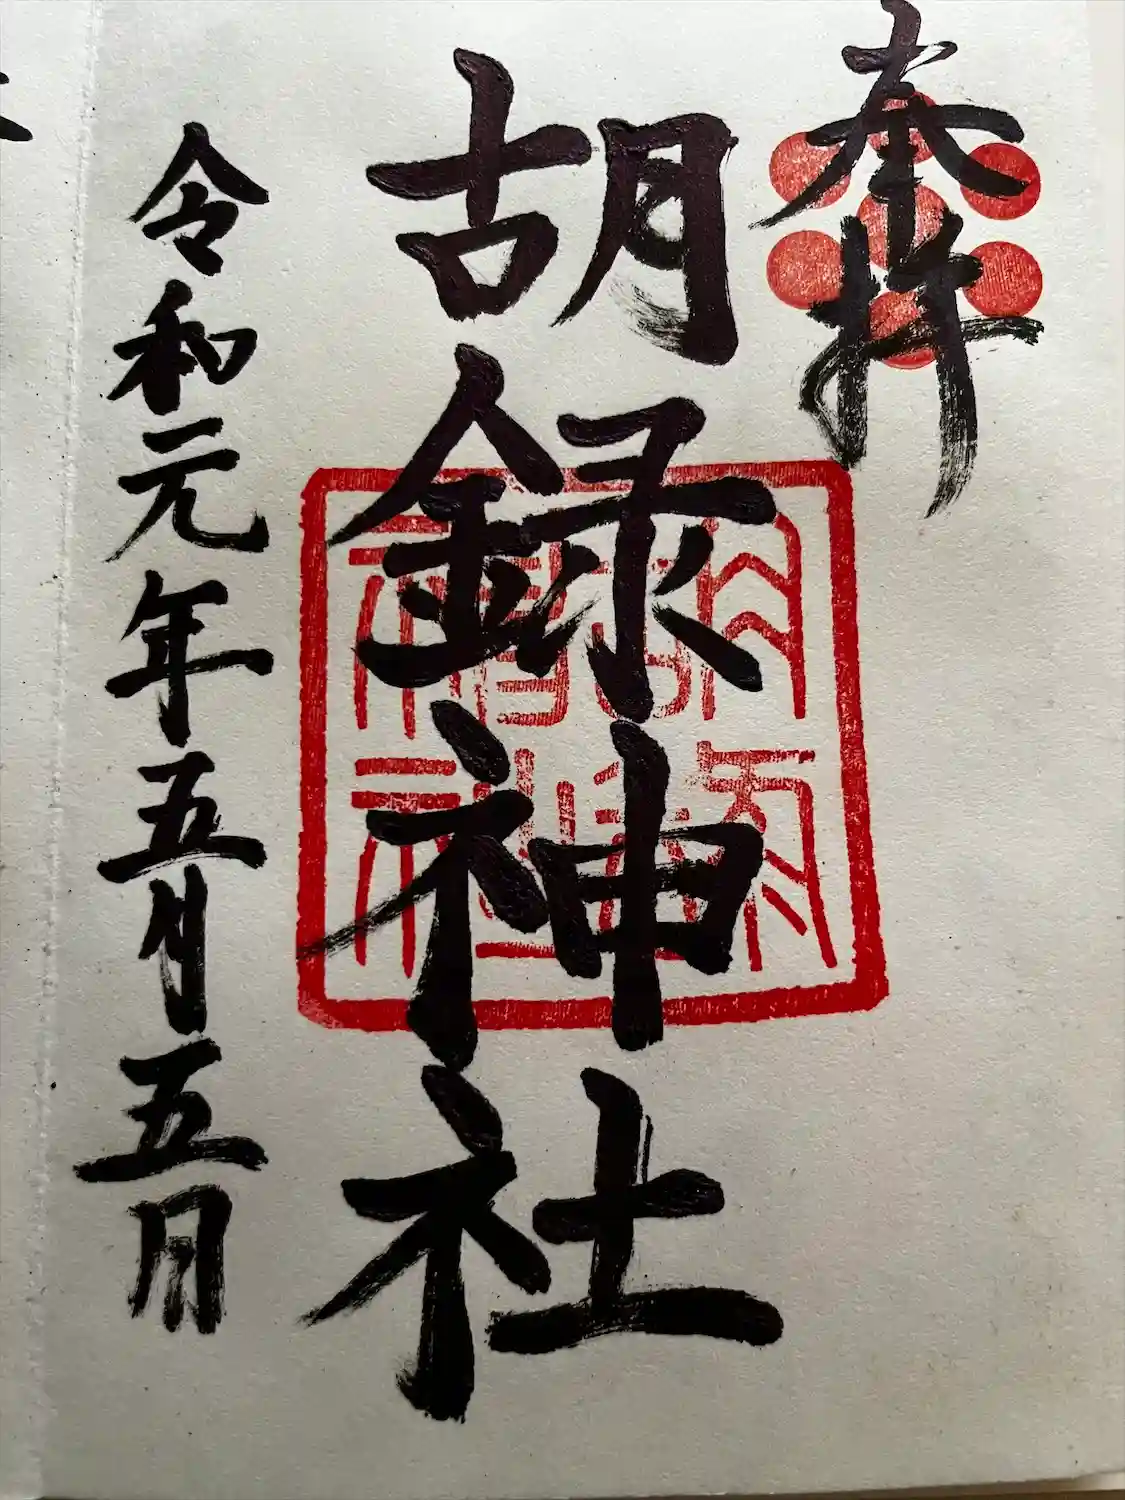 奉拝
胡録神社
令和元年五月五日